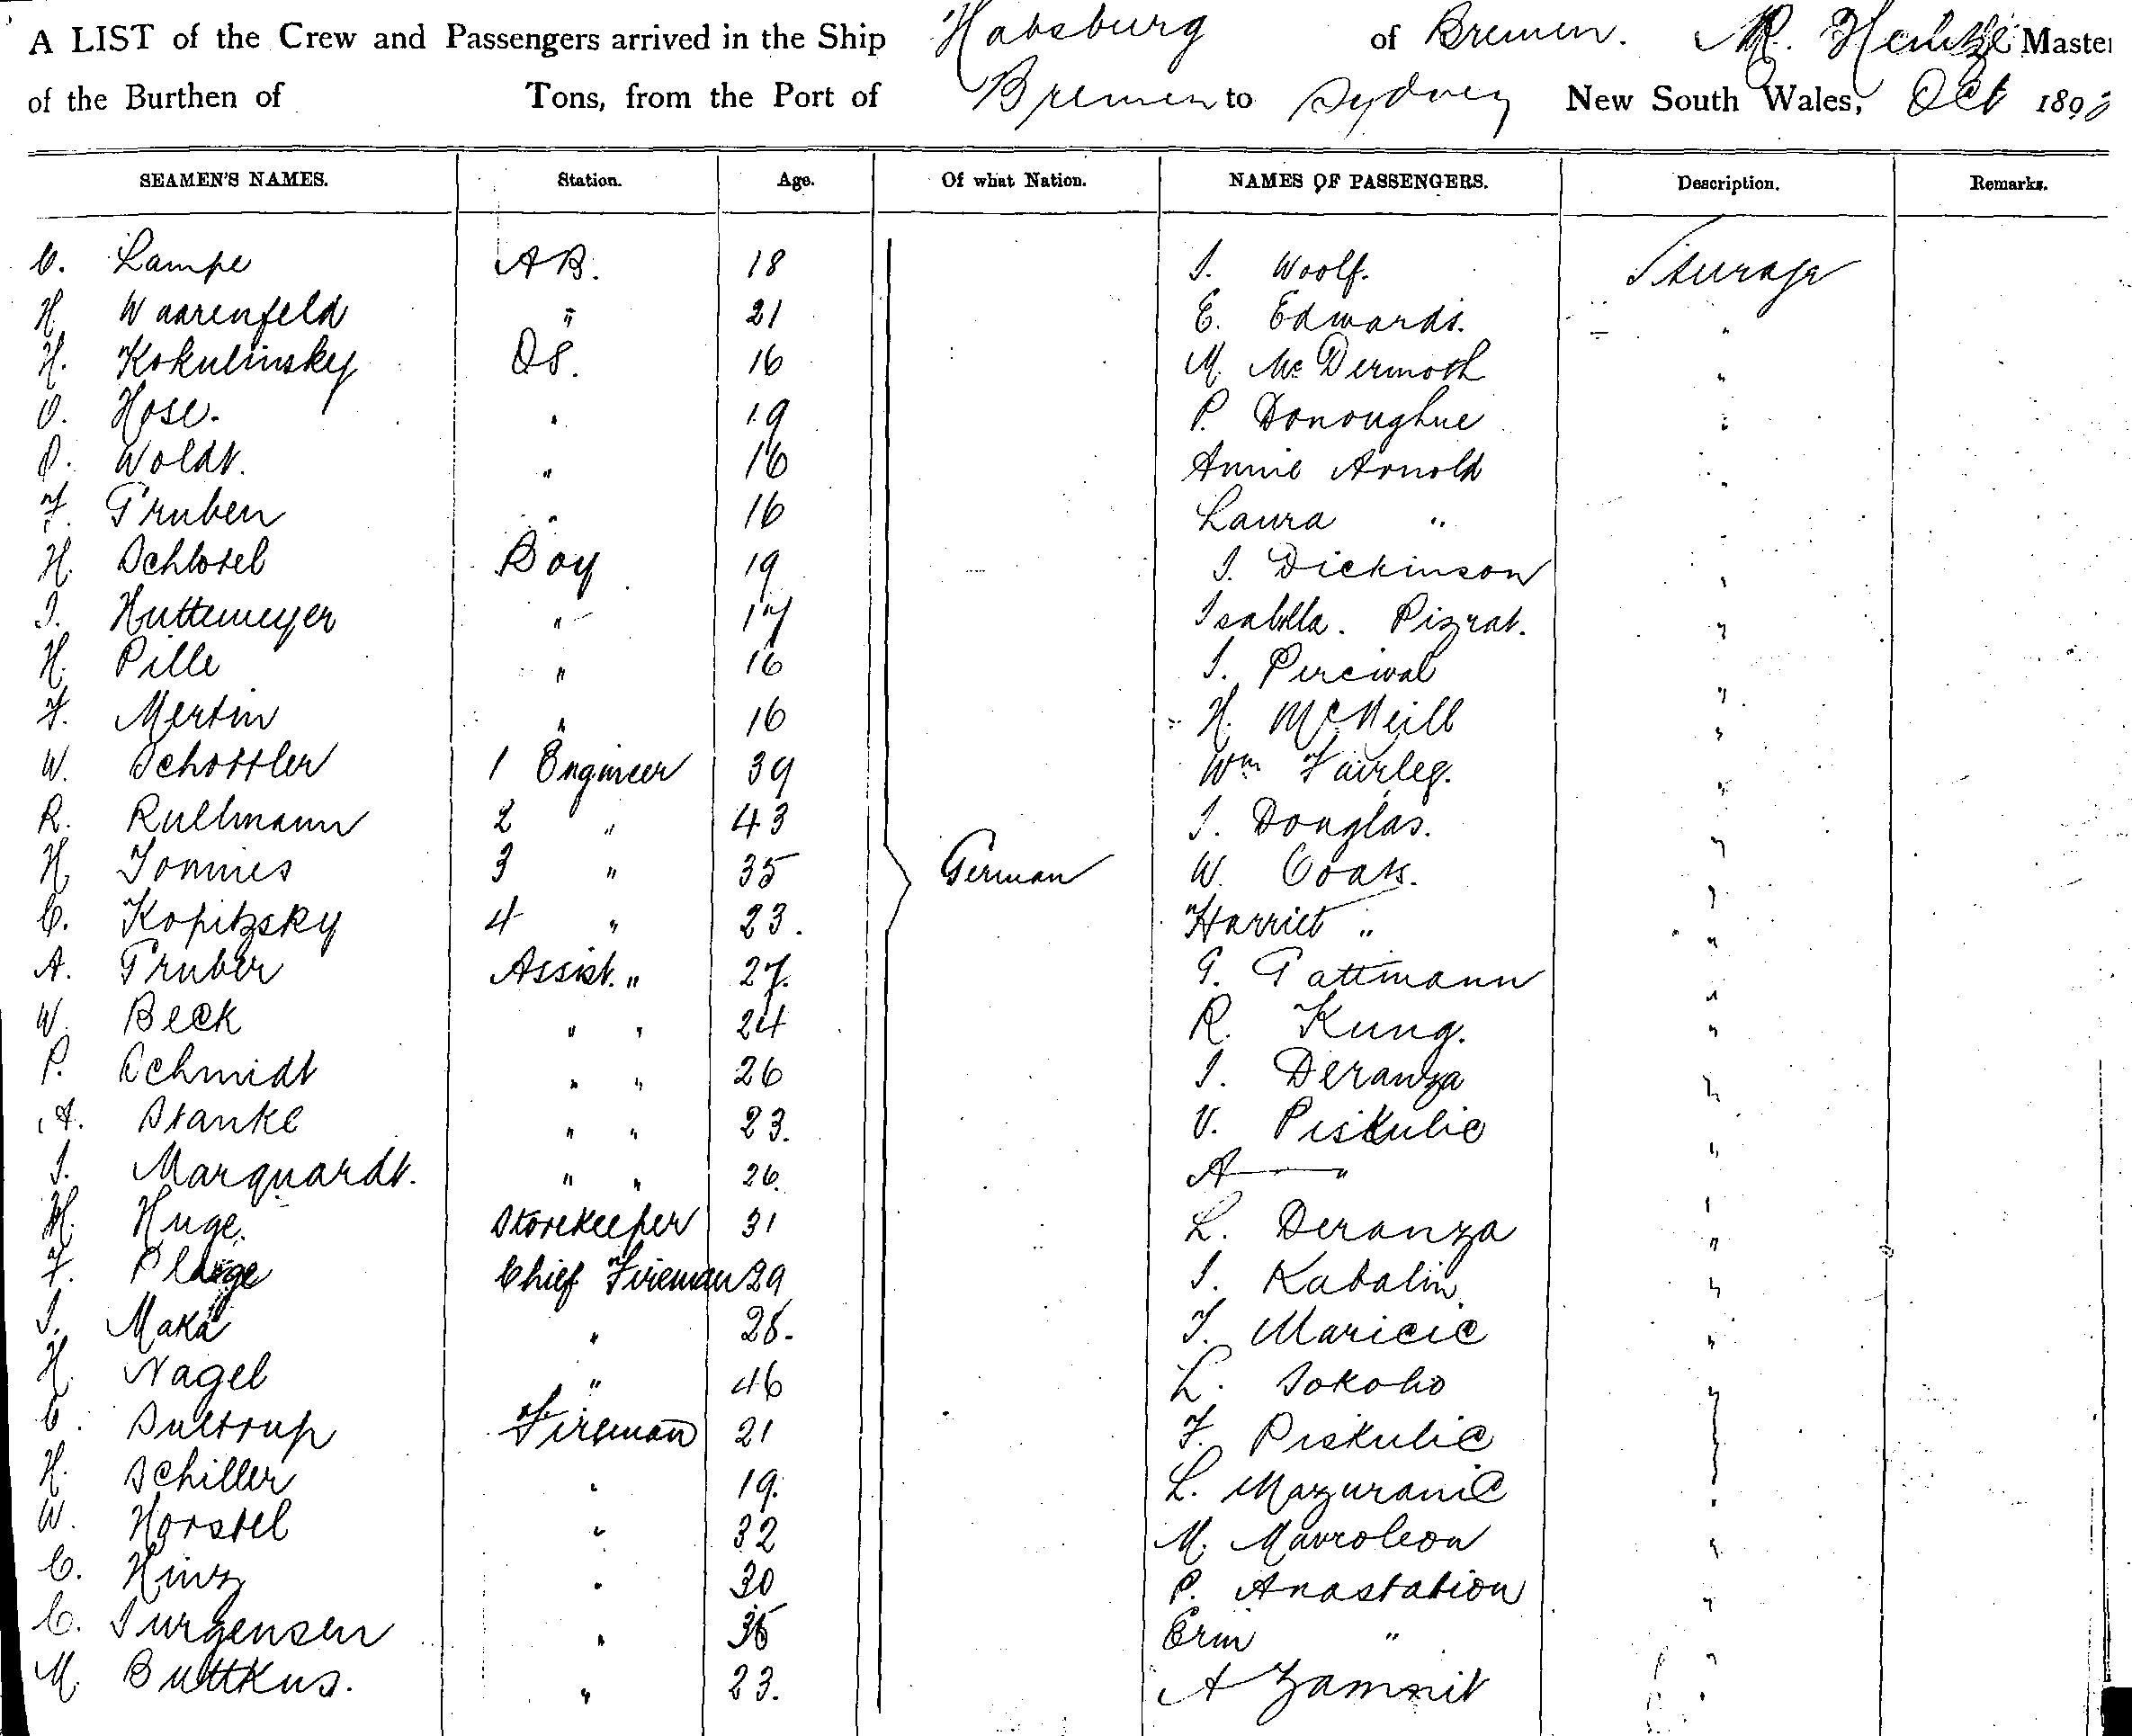 A LIST of the Crew and Passengers arrived in the Ship Habsburg of Bremen. Master
of the Burthen of Tons, from the Port of Bremen to Sydney New South Wales, Oct 189
SEAMEN'S NAMES. Station. Age. Of what Nation. NAMES OF PASSENGERS. Description. Remarks.
C. Lampe AB. 18 J. Woolf. Steerage
H. Waarenfeld " 21 E. Edwards. "
H. Kokulinsky OS. 16 M. McDermoth "
O. Hose. " 19 P. Donoughue "
O. Woldt. " 16 Annie Arnold "
F. Gruben " 16 Laura "
H. Schlosel Boy 19 J. Dickinson "
J. Huttemeyer " 17 Isabella. Pizrat. "
H. Pille " 16 J. Percival "
F. Mertin " 16 H. McNeill "
W. Schottler 1 Engineer 39 Wm Fairleg. "
R. Rullmann 2 " 43 J. Douglas. "
H. Tonnies 3 " 35 German W. Coats. "
C. Kopitzsky 4 " 23. Harriet " "
A. Gruber Assist. " 27. G. Gattmann "
W. Beck " " 24 R. Kung. "
P. Schmidt " " 26 J. Deranza "
A. Stanke " " 23. V. Piskulic "
J. Marquardt. " " 26. A — " "
H. Huge. Storekeeper 31 L. Deranza "
F. Plöge Chief Fireman 29 J. Kabalin. "
J. Maka " 28. J. Maricic "
H. Nagel " 46 L. Sokolio "
C. Sultrup Fireman 21 F. Piskulic "
H. Schiller " 19. L. Mazuranic "
W. Horstel " 32 M. Mavroleon "
C. Hinz " 30 P. Anastation "
C. Jurgensen " 36 Erin " "
M. Buttkus. " 23. A Zamnit "